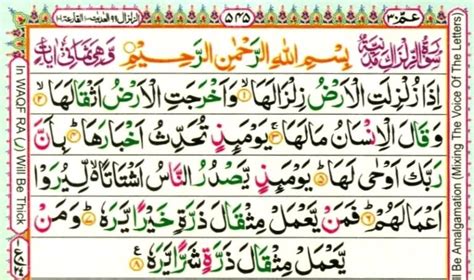 عمّ ٣٠
٥٣٥
الزلزال ٩٩ العديت ١٠٠ القارعة ١٠١
سُوْرَةُ الزِّلْزَالِ مَدَنِيَّةٌ
بِسْمِ اللهِ الرَّحْمٰنِ الرَّحِيْمِ
وَهِيَ ثَمَانِيْ اٰيَاتٍ
اِذَا زُلْزِلَتِ الْاَرْضُ زِلْزَالَهَا ۙ﴿١﴾ وَاَخْرَجَتِ الْاَرْضُ اَثْقَالَهَا ۙ﴿٢﴾
وَقَالَ الْاِنْسَانُ مَا لَهَا ۚ﴿٣﴾ يَوْمَئِذٍ تُحَدِّثُ اَخْبَارَهَا ۙ﴿٤﴾ بِاَنَّ
رَبَّكَ اَوْحٰى لَهَا ؕ﴿٥﴾ يَوْمَئِذٍ يَّصْدُرُ النَّاسُ اَشْتَاتًا ۙ لِّيُرَوْا
اَعْمَالَهُمْ ؕ﴿٦﴾ فَمَنْ يَّعْمَلْ مِثْقَالَ ذَرَّةٍ خَيْرًا يَّرَهٗ ؕ﴿٧﴾ وَمَنْ
يَّعْمَلْ مِثْقَالَ ذَرَّةٍ شَرًّا يَّرَهٗ ﴿٨﴾
In WAQF RA (ر) Will Be Thick
ll Be Amalgamation (Mixing The Voice Of The Letters)